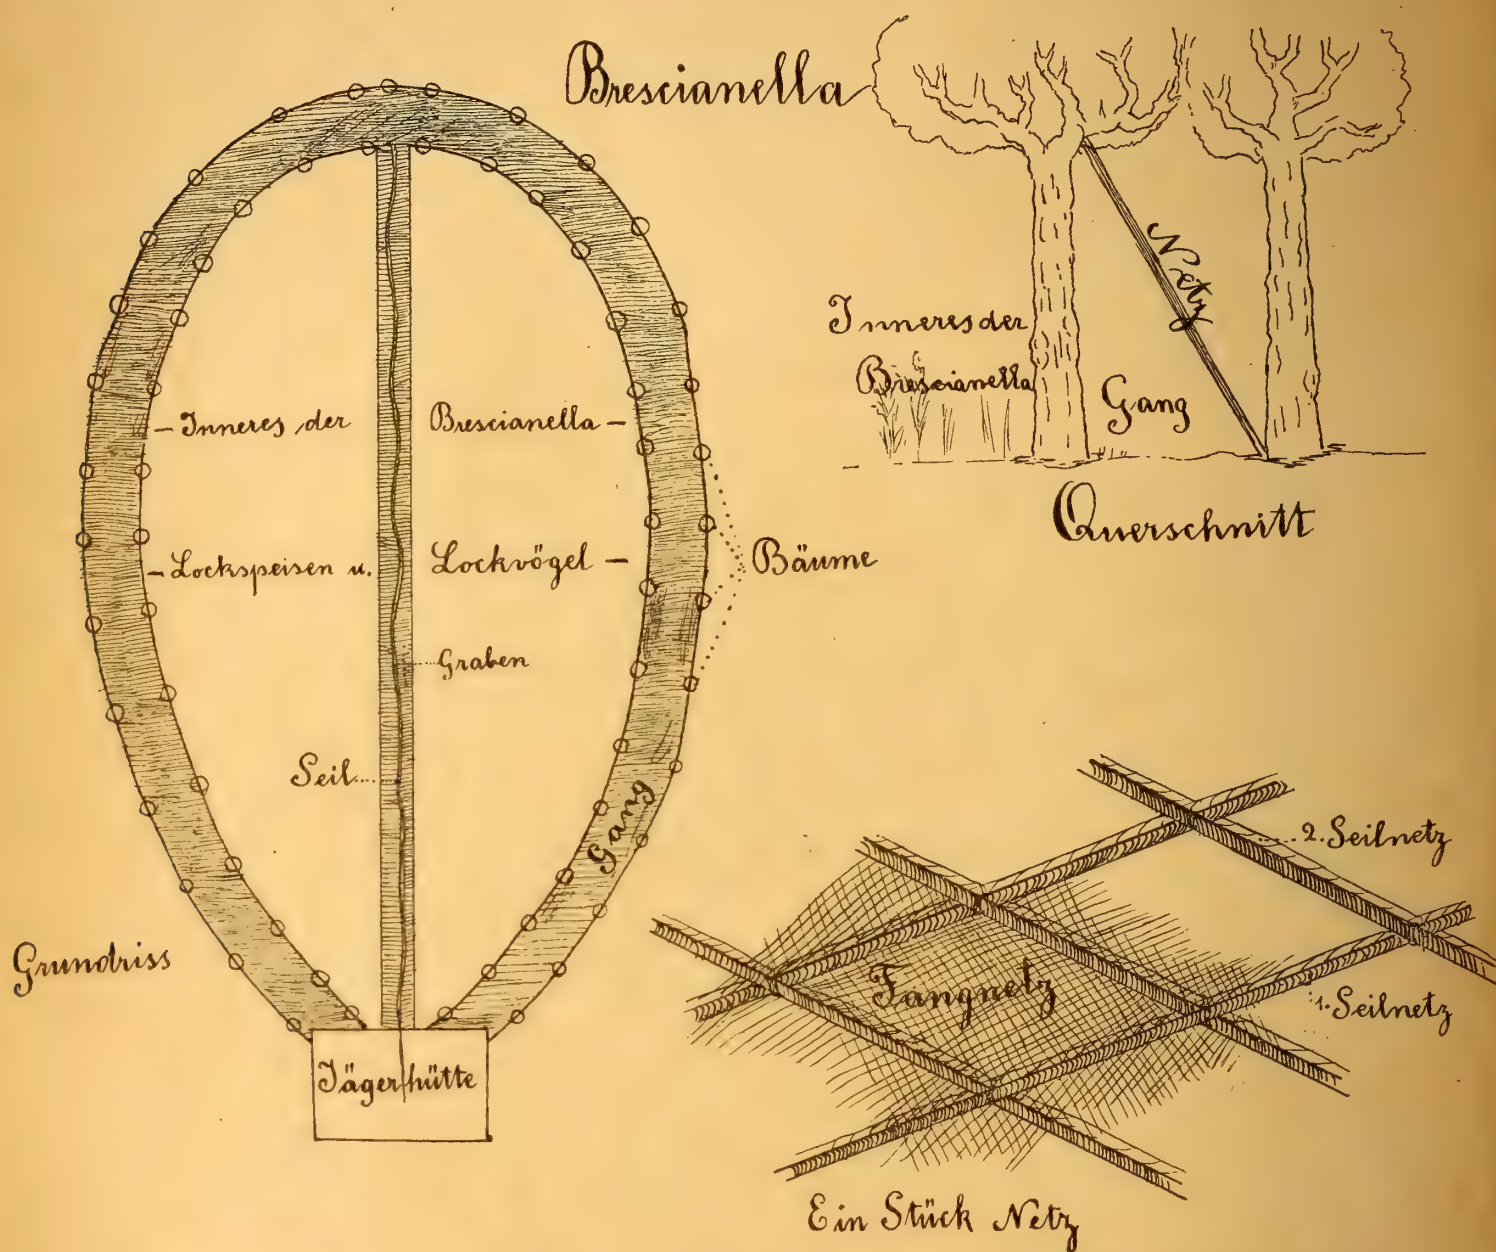 Brescianella
Netz
Inneres der
Brescianella
Gang
Querschnitt
– Inneres der Brescianella –
– Lockspeisen u. Lockvögel –
Bäume
Graben
Seil
Gang
Grundriss
Jägerhütte
2. Seilnetz
Fangnetz
1. Seilnetz
Ein Stück Netz